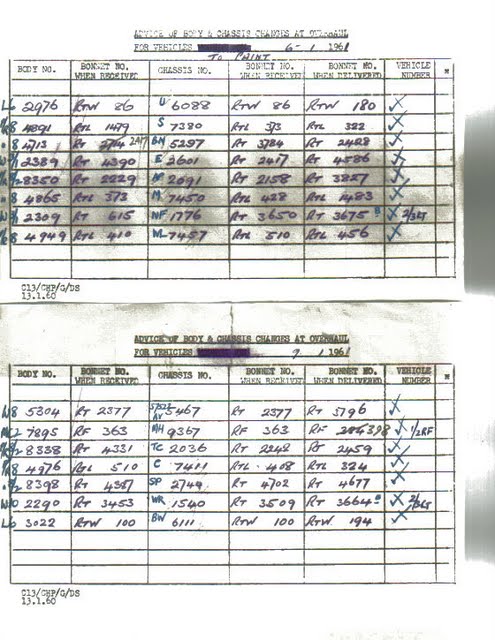 ADVICE OF BODY & CHASSIS CHANGES AT OVERHAUL
FOR VEHICLES 6-1 1961
TO PAINT
BODY NO. BONNET NO. WHEN RECEIVED CHASSIS NO. BONNET NO. WHEN RECEIVED BONNET NO. WHEN DELIVERED VEHICLE NUMBER
L6 2976 RTW 86 U 6088 RTW 86 RTW 180
8 4891 RTL 1479 S 7380 RTL 373 RTL 322
8 4713 RT 2417 BN 5297 RT 3784 RT 2428
2389 RT 4390 E 2601 RT 2417 RT 4586
8350 RT 2229 2691 RT 2158 RT 3827
8 4865 RTL 373 M 7450 RTL 428 RTL 1483
2309 RT 615 NF 1776 RT 3650 RT 3675 2/3LT
8 4949 RTL 410 ML 7457 RTL 510 RTL 456
C13/CHP/G/DS
13.1.60
ADVICE OF BODY & CHASSIS CHANGES AT OVERHAUL
FOR VEHICLES 9 1 1961
BODY NO. BONNET NO. WHEN RECEIVED CHASSIS NO. BONNET NO. WHEN RECEIVED BONNET NO. WHEN DELIVERED VEHICLE NUMBER
W8 5304 RT 2377 AV 5467 RT 2377 RT 3796
7895 RF 363 MH 9367 RF 363 RF 398 1/2RF
8338 RT 4331 TC 2036 RT 2242 RT 2459
8 4976 RTL 510 C 7411 RTL 408 RTL 324
8398 RT 4387 SP 2749 RT 4702 RT 4677
W10 2290 RT 3453 WR 1540 RT 3509 RT 3664 2/3LT
L6 3022 RTW 100 BW 6111 RTW 100 RTW 194
C13/CHP/G/DS
13.1.60